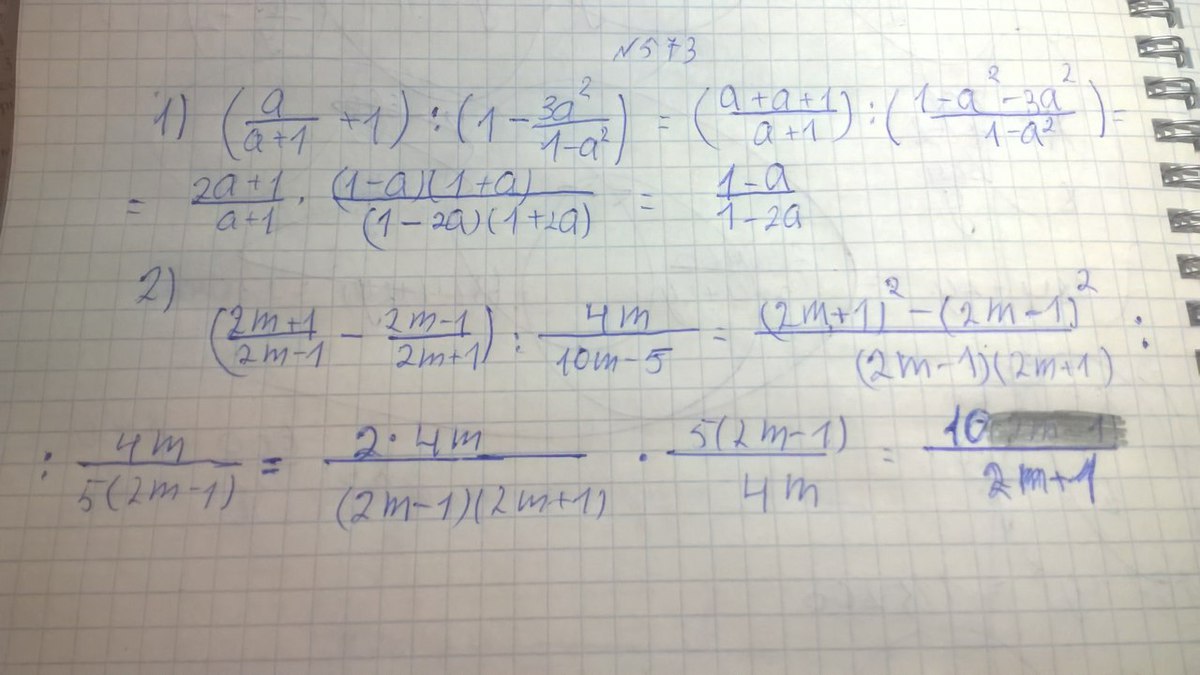 №573
1) (a/(a+1) + 1) : (1 - 3a²/(1-a²)) = ((a+a+1)/(a+1)) : ((1-a²-3a²)/(1-a²)) =
= (2a+1)/(a+1) · (1-a)(1+a)/((1-2a)(1+2a)) = (1-a)/(1-2a)
2)
((2m+1)/(2m-1) - (2m-1)/(2m+1)) : 4m/(10m-5) = ((2m+1)² - (2m-1)²)/((2m-1)(2m+1)) :
: 4m/(5(2m-1)) = 2·4m/((2m-1)(2m+1)) · 5(2m-1)/4m = 10/(2m+1)